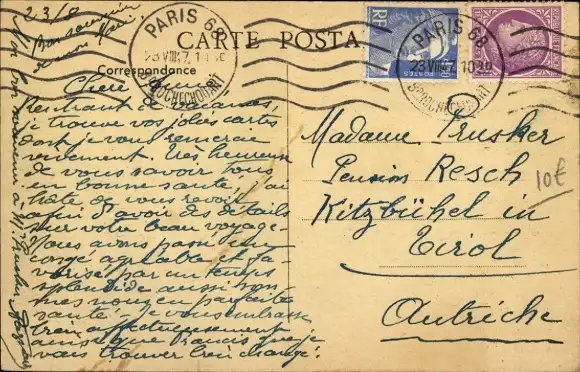 23/8
Bonsouvenir
à mon mari.
CARTE POSTALE
Correspondance
PARIS 68
23 VIII 47 10H30
R. ROCHECHOUART
RF
POSTES
PARIS 68
23 VIII 47 10H30
R. ROCHECHOUART
Chère
rentrant de vacances,
je trouve vos jolies cartes
dont je vous remercie
vivement. Très heureux
de vous savoir tous
en bonne santé, j'ai
hâte de vous revoir
afin d'avoir des détails
sur votre beau voyage.
Nous avons passé un
congé agréable et fa-
vorisé par un temps
splendide aussi som-
mes nous en parfaite
santé. Je vous embrasse
bien affectueusement
ainsi que Francis que je
vais trouver bien changé.
Madame Prusker
Pension Resch
Kitzbühel in
Tirol
Autriche
10€